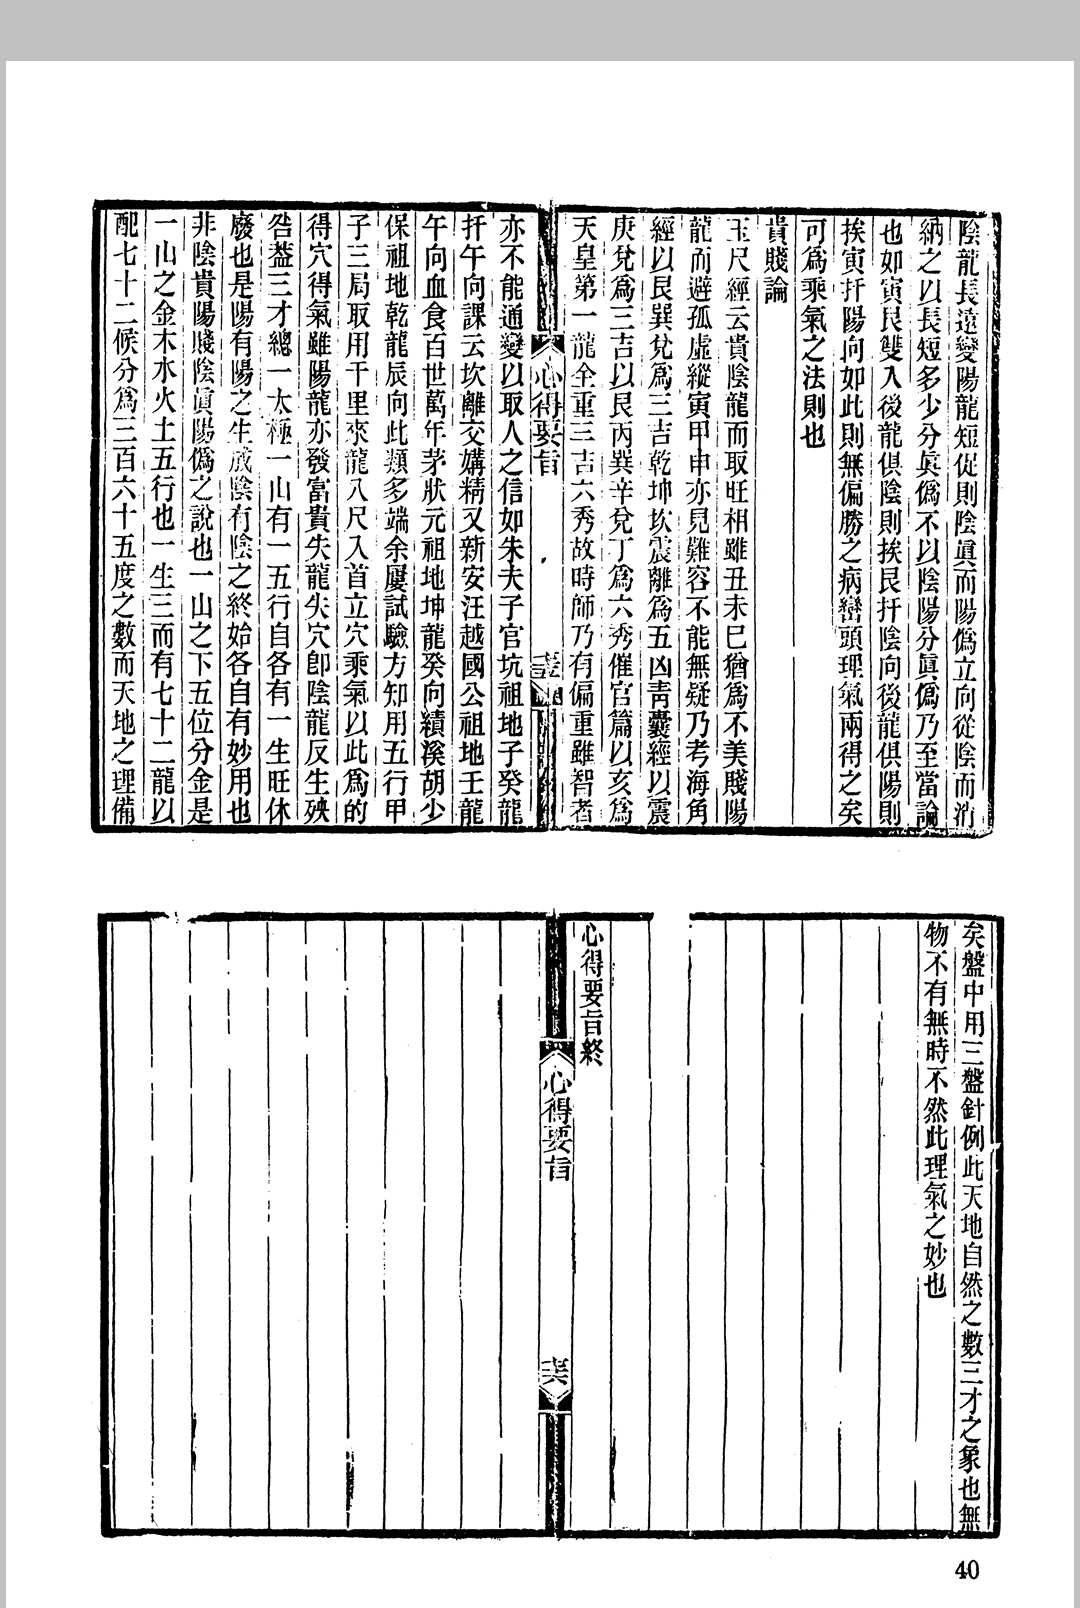 陰龍長遠變陽龍短促則陰眞而陽僞立向從陰而消
納之以長短多少分眞僞不以陰陽分眞僞乃至當論
也如寅艮雙入後龍俱陰則挨艮扦陰向後龍俱陽則
挨寅扦陽向如此則無偏勝之病巒頭理氣兩得之矣
可爲乘氣之法則也
貴賤論
玉尺經云貴陰龍而取旺相雖丑未巳猶爲不美賤陽
龍而避孤虛縱寅甲申亦見難容不能無疑乃考海角
經以艮巽兌爲三吉乾坤坎震離爲五凶靑囊經以震
庚兌爲三吉以艮丙巽辛兌丁爲六秀催官篇以亥爲
天皇第一龍全重三吉六秀故時師乃有偏重雖智者
心得要旨
亦不能通變以取人之信如朱夫子官坑祖地子癸龍
扦午向課云坎離交媾精又新安汪越國公祖地壬龍
午向血食百世萬年茅狀元祖地坤龍癸向績溪胡少
保祖地乾龍辰向此類多端余屢試驗方知用五行甲
子三局取用千里來龍八尺入首立穴乘氣以此爲的
得穴得氣雖陽龍亦發富貴失龍失穴卽陰龍反生殃
咎葢三才總一太極一山有一五行自各有一生旺休
廢也是陽有陽之生成陰有陰之終始各自有妙用也
非陰貴陽賤陰眞陽僞之說也一山之下五位分金是
一山之金木水火土五行也一生三而有七十二龍以
配七十二候分爲三百六十五度之數而天地之理備
矣盤中用三盤針例此天地自然之數三才之象也無
物不有無時不然此理氣之妙也
心得要旨終
心得要旨
十六
40